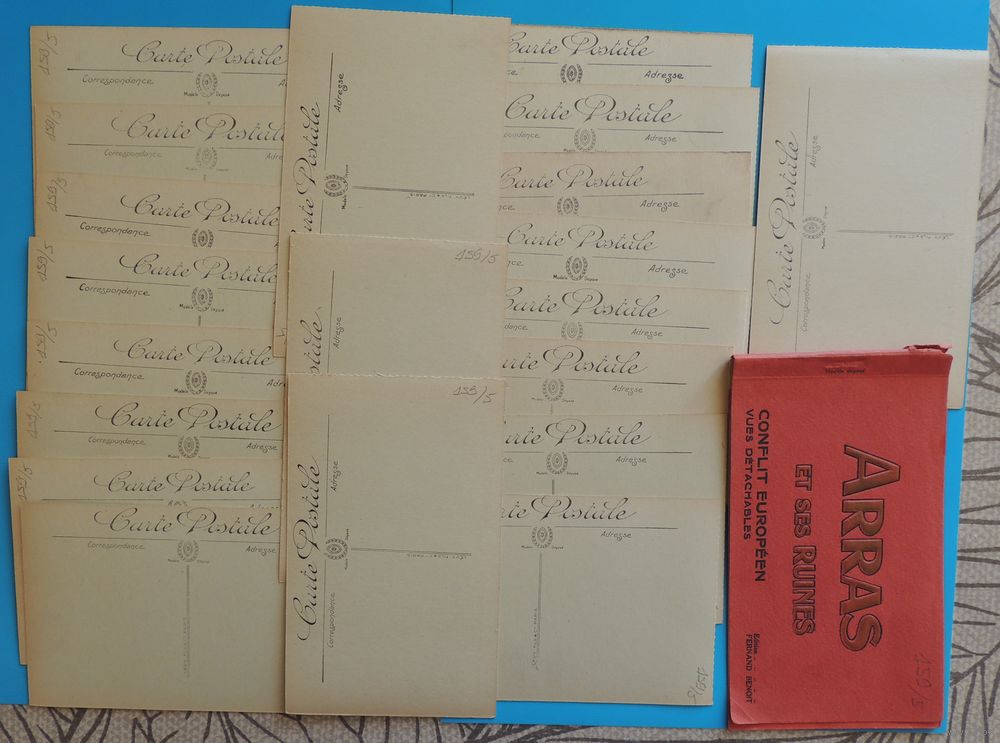 159/5
Carte Postale
Correspondance
Adresse
Modèle Déposé
159/5
Carte Postale
Correspondance
Adre
159/5
Carte Postale
Correspondance
159/5
Carte Postale
Correspondance
Modèle Déposé
159/5
Carte Postale
Correspondance
Adr
Modèle
159/5
Carte Postale
Correspondance
Adresse
Modèle Déposé
159/5
Carte Postale
Carte Postale
Correspondance
Adresse
Modèle Déposé
arte Postale
Adresse
Modèle Déposé
159/5
ostale
Adresse
159/5
Carte Postale
Correspondance
Adresse
Modèle Déposé
Carte Postale
ce
Adresse
Carte Postale
ondance
Carte Postale
ce
Adresse
Carte Postale
Adresse
Carte Postale
dance
Carte Postale
Adresse
rte Postale
ce
Adresse
rte Postale
Adresse
159/5
Carte Postale
Correspondance
Adresse
Modèle Déposé
Modèle déposé
ARRAS
ET SES RUINES
CONFLIT EUROPÉEN
VUES DÉTACHABLES
Edition
FERNAND BENOIT
159/5